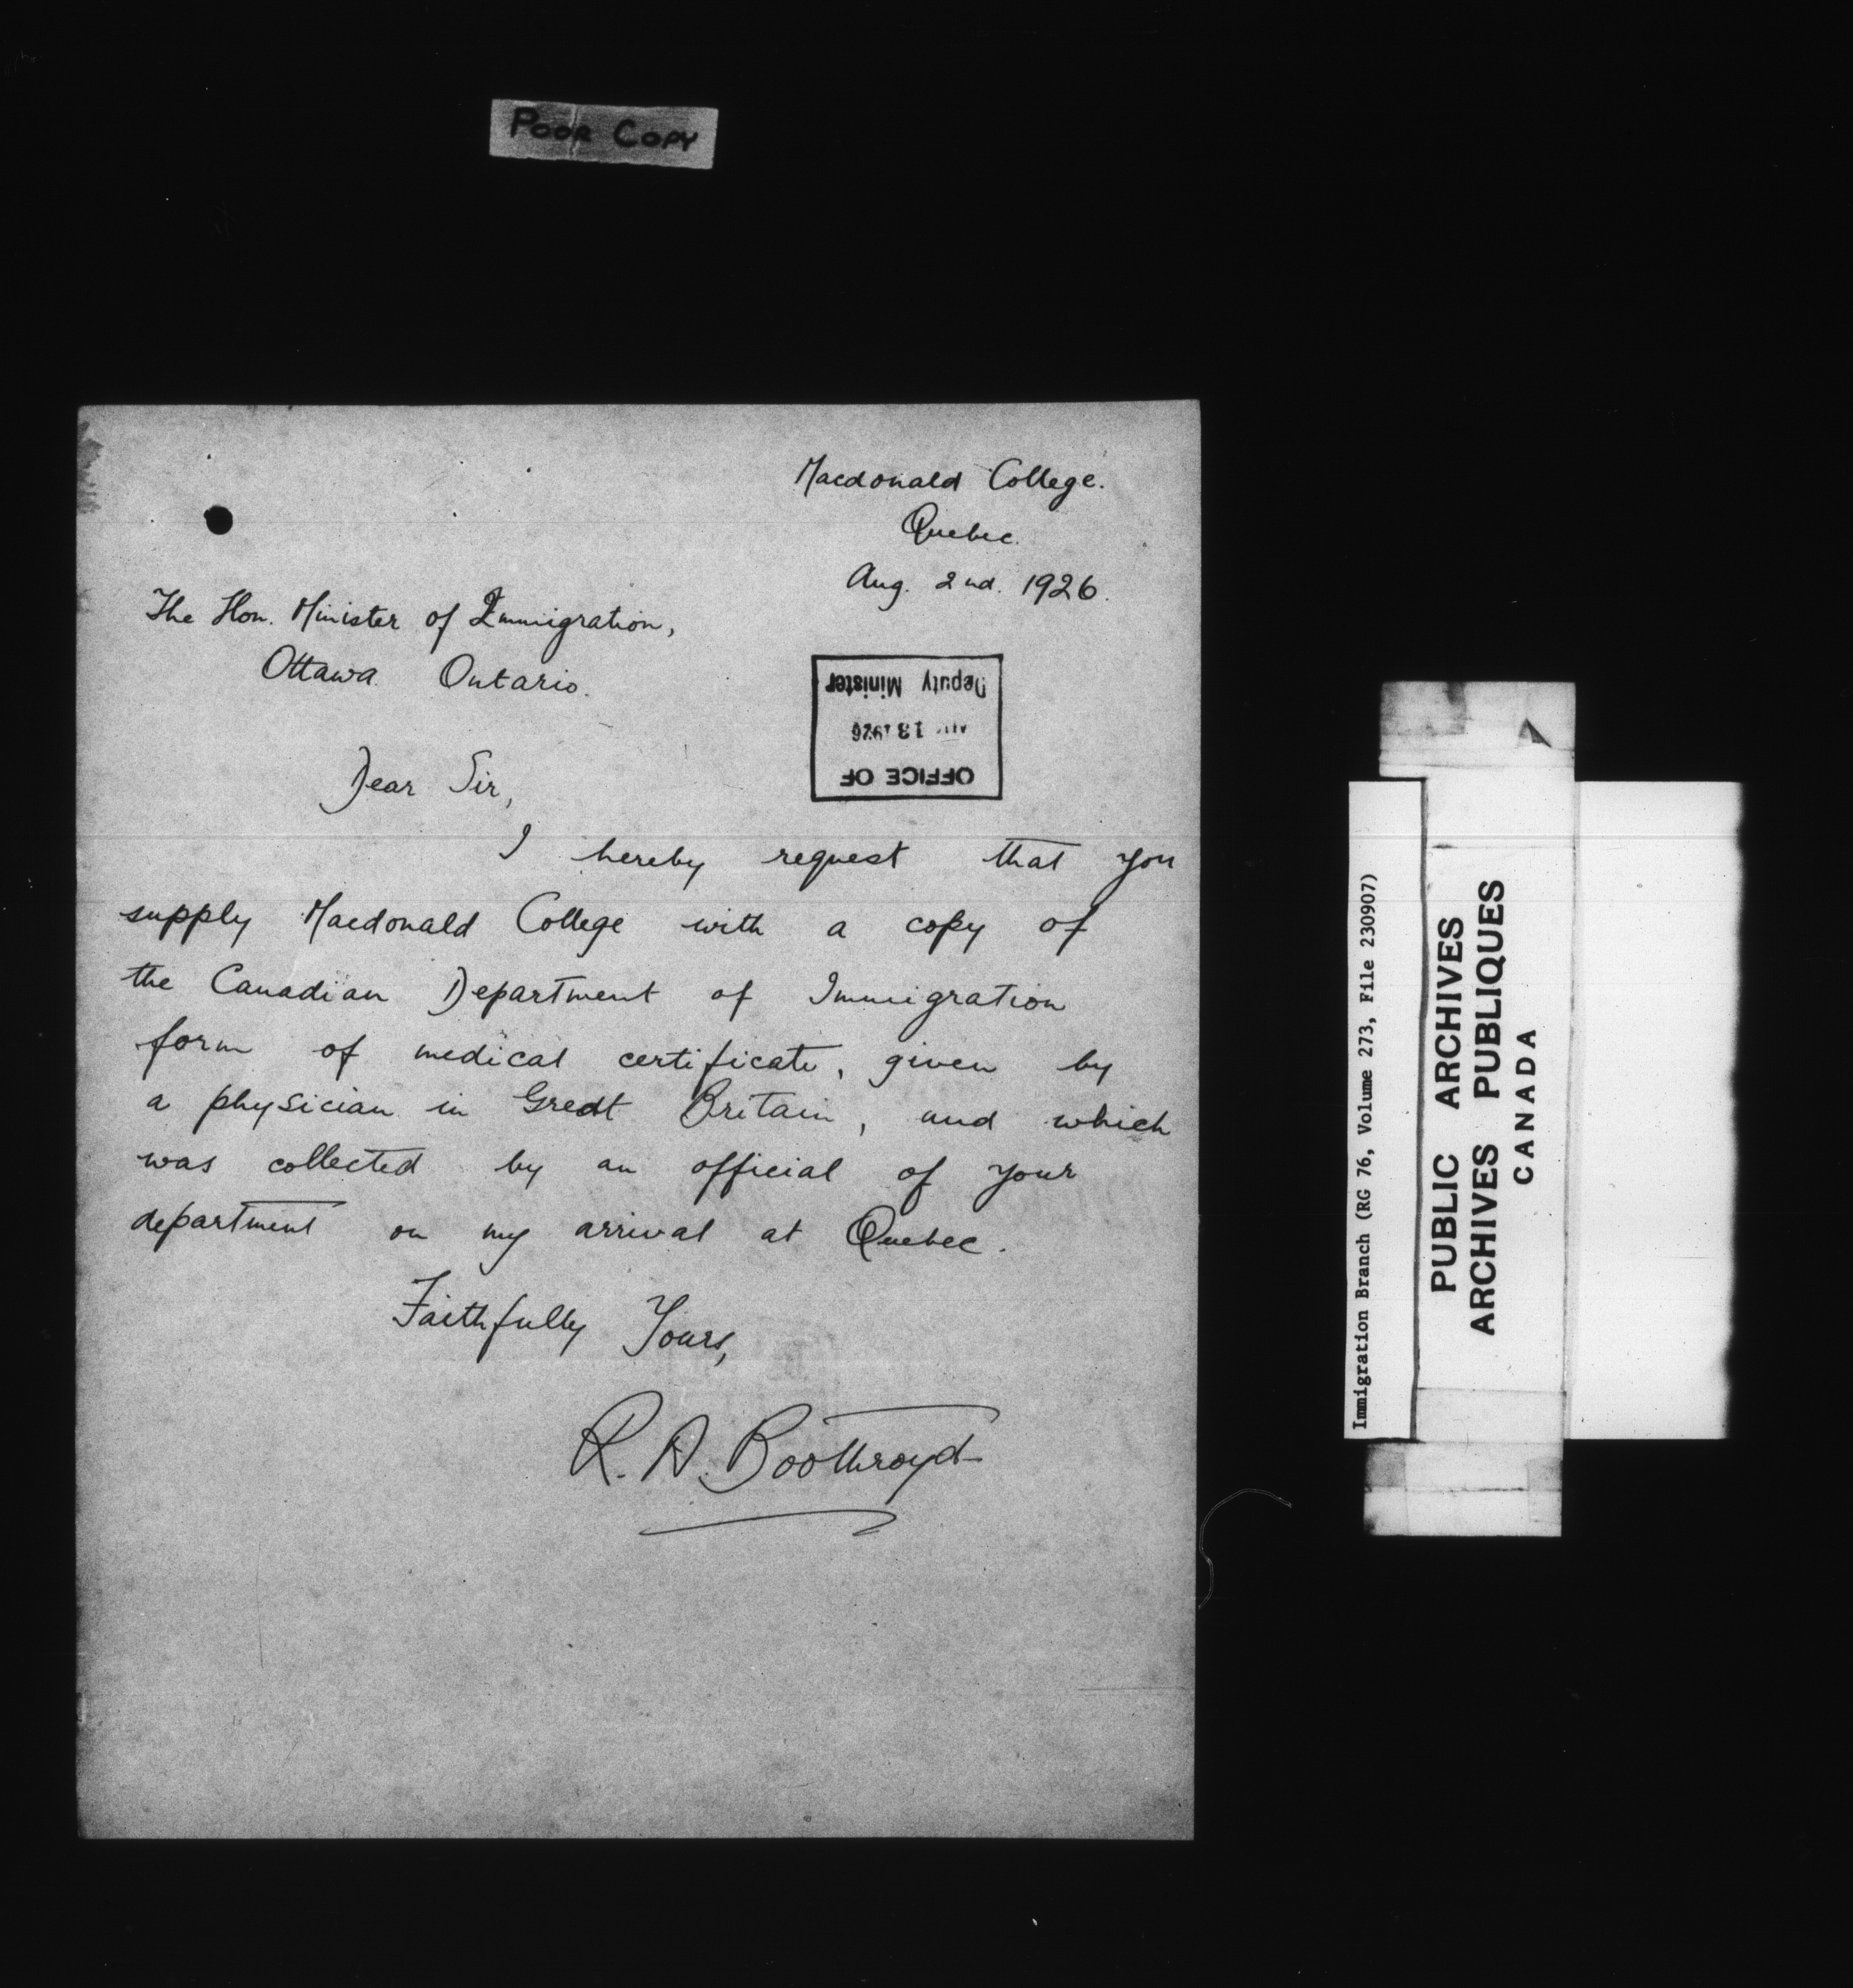 POOR COPY
Macdonald College.
Quebec.
Aug. 2nd. 1926.
The Hon. Minister of Immigration,
Ottawa. Ontario.
OFFICE OF
AUG 13 1926
Deputy Minister
Dear Sir,
I hereby request that you
supply Macdonald College with a copy of
the Canadian Department of Immigration
form of medical certificate, given by
a physician in Great Britain, and which
was collected by an official of your
department on my arrival at Quebec.
Faithfully Yours,
R. A. Boothroyd
Immigration Branch (RG 76, Volume 273, File 230907)
PUBLIC ARCHIVES
ARCHIVES PUBLIQUES
CANADA